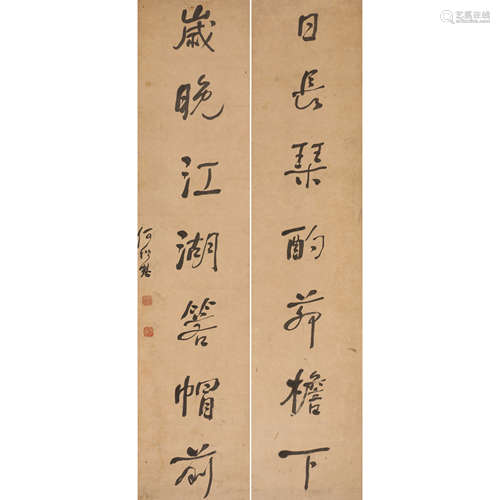 日長琹酌茆檐下
歲晚江湖箬帽前
何紹基